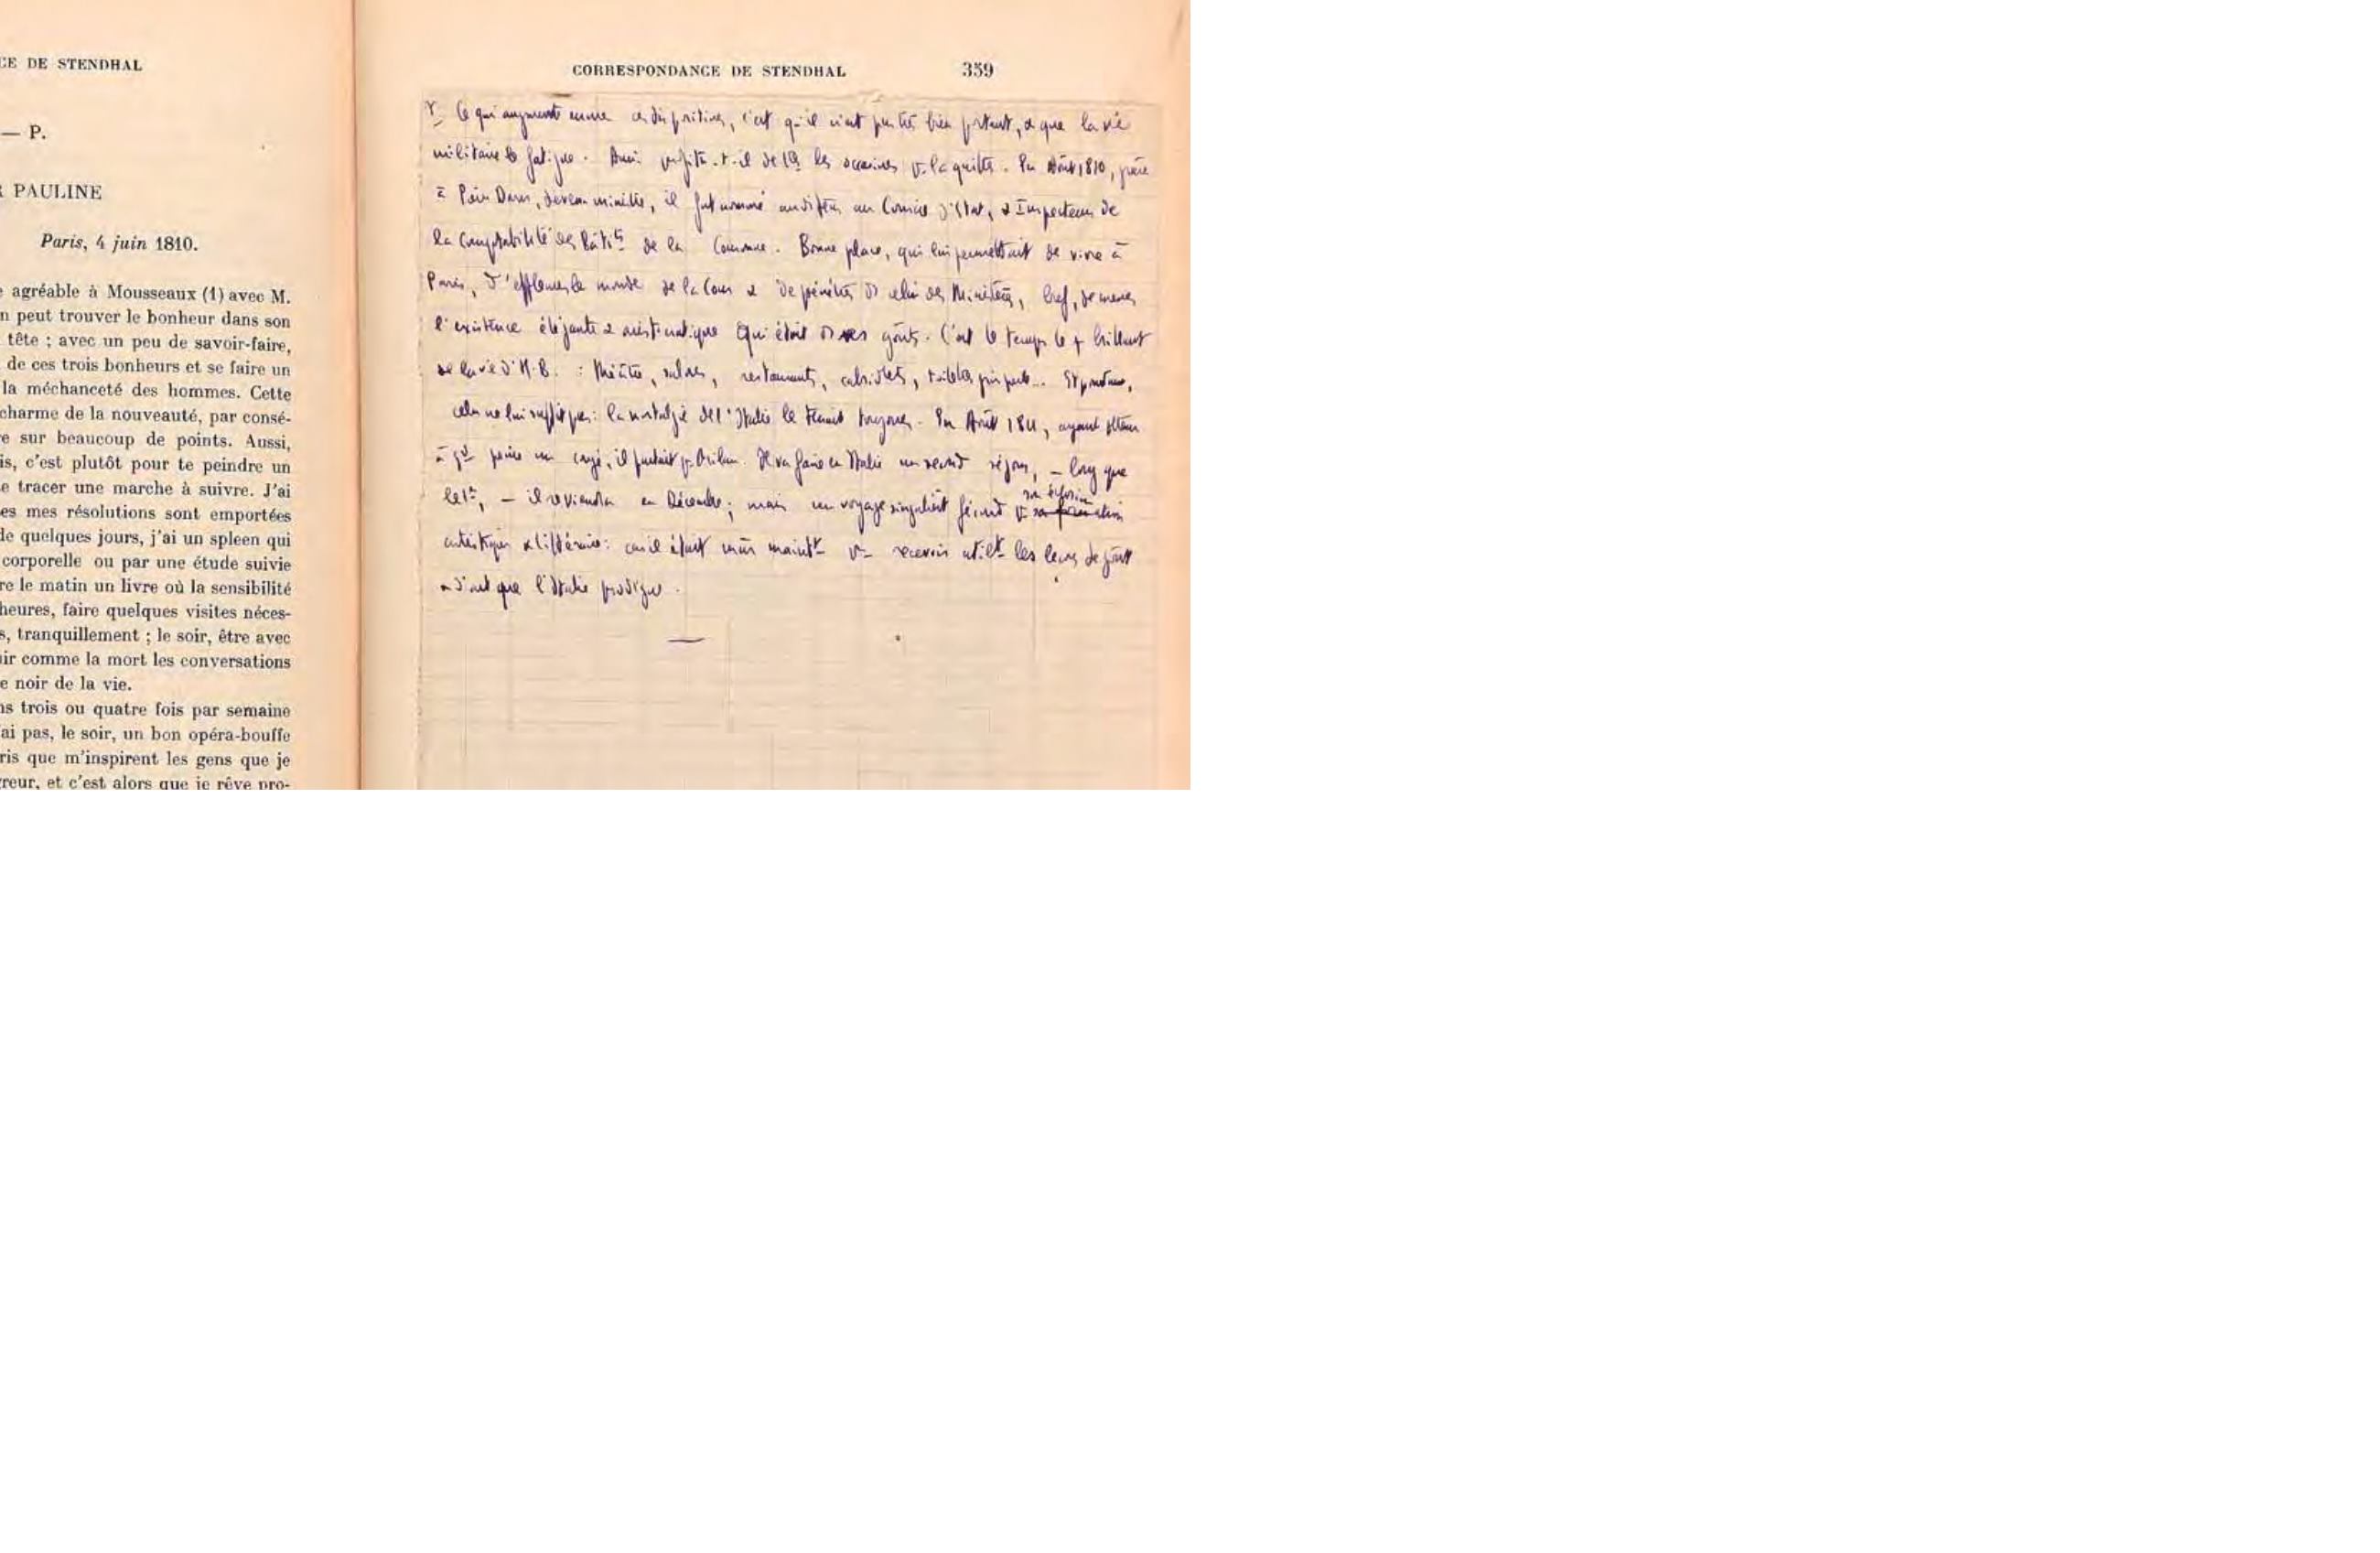 CE DE STENDHAL
— P.
R PAULINE
Paris, 4 juin 1810.
e agréable à Mousseaux (1) avec M.
n peut trouver le bonheur dans son
tête ; avec un peu de savoir-faire,
de ces trois bonheurs et se faire un
la méchanceté des hommes. Cette
charme de la nouveauté, par consé-
e sur beaucoup de points. Aussi,
is, c'est plutôt pour te peindre un
e tracer une marche à suivre. J'ai
es mes résolutions sont emportées
de quelques jours, j'ai un spleen qui
corporelle ou par une étude suivie
re le matin un livre où la sensibilité
heures, faire quelques visites néces-
s, tranquillement ; le soir, être avec
uir comme la mort les conversations
e noir de la vie.
ns trois ou quatre fois par semaine
'ai pas, le soir, un bon opéra-bouffe
ris que m'inspirent les gens que je
reur, et c'est alors que je rêve pro-
CORRESPONDANCE DE STENDHAL 359
Ce qui augmente encore ces dispositions, c'est qu'il n'est pas très bien portant, & que la vie
militaire le fatigue. Aussi profite-t-il de les occasions la quitter. En Août 1810,
à Daru, devenu ministre, il fut nommé auditeur au Conseil d'Etat, & Inspecteur de
la Comptabilité des Bâtits de la Couronne. Bonne place, qui lui permettait de vivre à
Paris, d'effleurer le monde de la Cour & de pénétrer ds celui des Ministères, bref, de mener
l'existence élégante & aristocratique qui était ds ses goûts. C'est le temps le + brillant
de la vie d'H.B. : théâtre, salons, restaurants, cabriolets, toilettes Et pourtant,
cela ne lui suffit pas : la nostalgie de l'Italie le tient toujours. En Août 1811, ayant obtenu
à gde peine un congé, il partait pr Milan. Il va faire en Italie un second séjour, – long que
le 1er, – il reviendra en Décembre ; mais un voyage singulièrt fécond pr son éclosion
artistique & littéraire : car il était mûr maintt pr recevoir utilt les leçons de goût
& d'art que l'Italie prodigue.